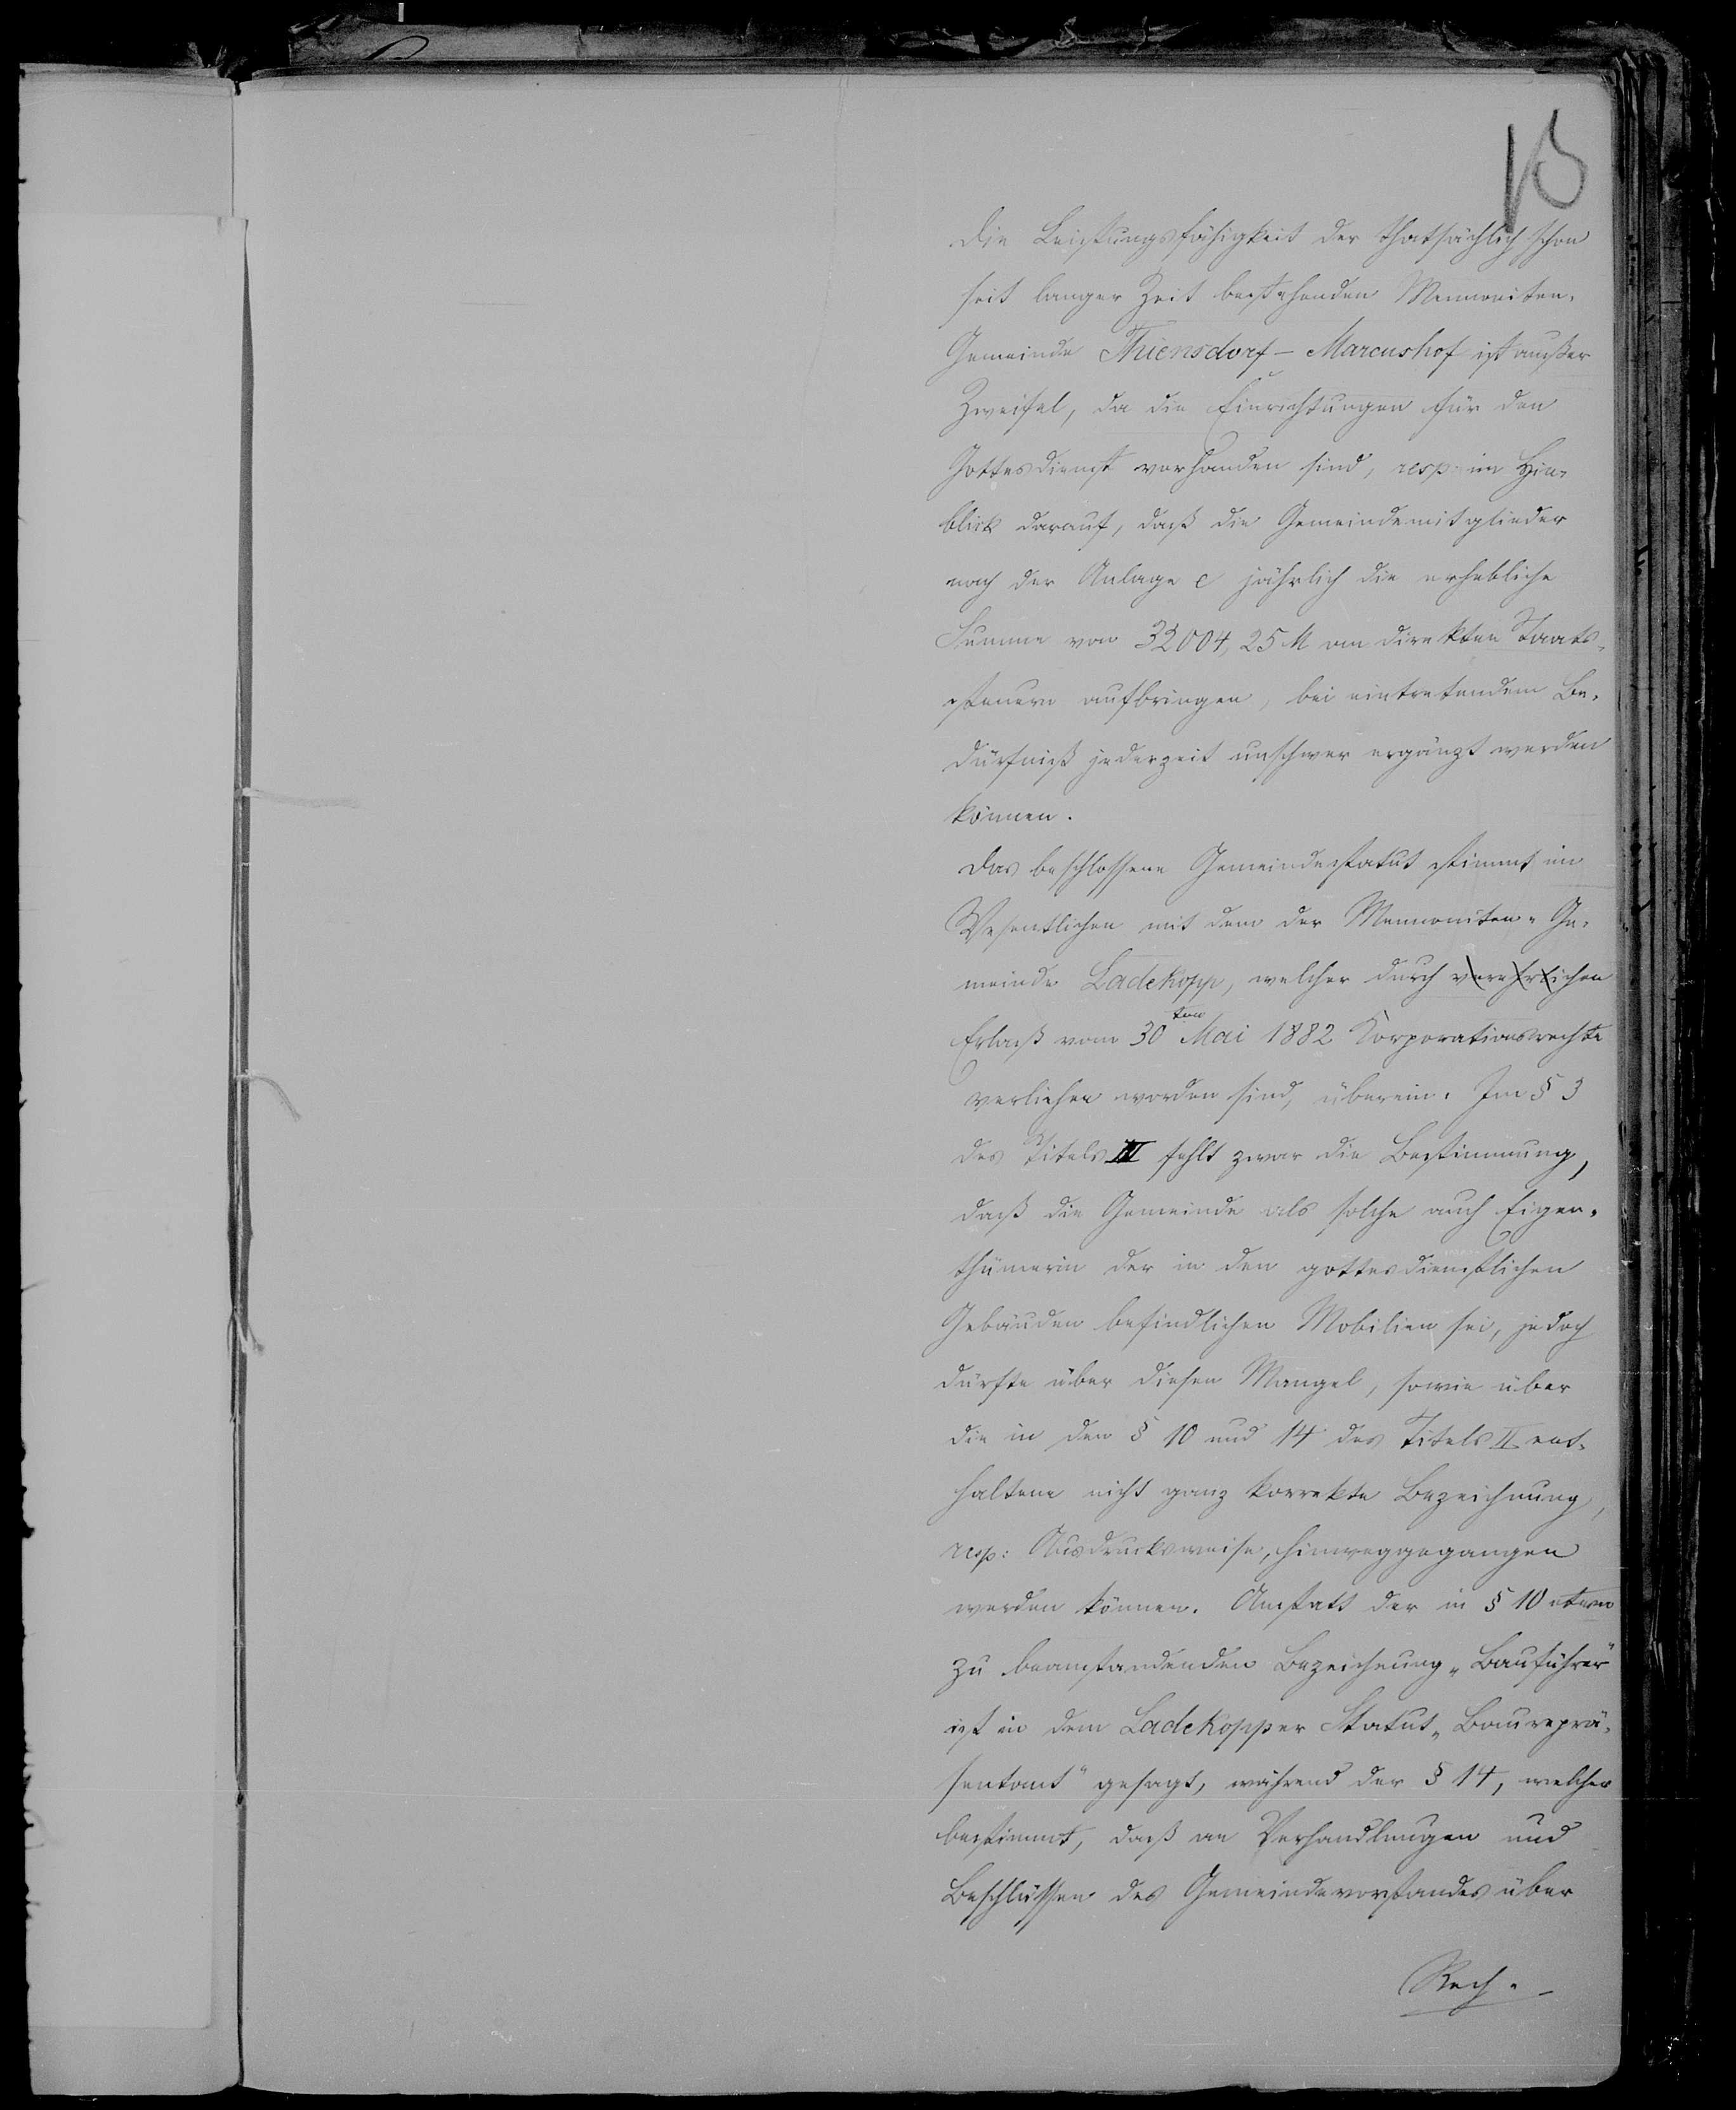 Die Leistungsfähigkeit der thatsächlich schon
seit langer Zeit bestehenden Mennoniten-
Gemeinde Thiensdorf - Marcushof ist außer
Zweifel, da die Einrichtungen für den
Gottesdienst vorhanden sind, resp: im Hin-
blick darauf, daß die Gemeindemitglieder
nach der Anlage c jährlich die erhebliche
Summe von 32004,25 M an direkten Staats-
steuern aufbringen, bei eintretendem Be-
dürfniß jederzeit unschwer ergänzt werden
können.
Das beschlossene Gemeindestatut stimmt im
Wesentlichen mit dem der Mennoniten-Ge-
meinde Ladekopp, welcher durch
Erlaß vom 30ten Mai 1882 Korporationsrechte
verliehen worden sind, überein. Im § 3
des Titels III fehlt zwar die Bestimmung,
daß die Gemeinde als solche auch Eigen-
thümerin der in den gottesdienstlichen
Gebäuden befindlichen Mobilien sei, jedoch
dürfte über diesen Mangel, sowie über
die in den § 10 und 14 des Titels II ent-
haltene nicht ganz korrekte Bezeichnung,
resp: Ausdrucksweise, hinweggegangen
werden können. Anstatt der in § 10 etwa
zu beanstandenden Bezeichnung „Bauführer"
ist in dem Ladekopper Statut „Baureprä-
sentant" gesagt, während der § 14, welcher
bestimmt, daß an Verhandlungen und
Beschlüssen des Gemeindevorstandes über
Rech-